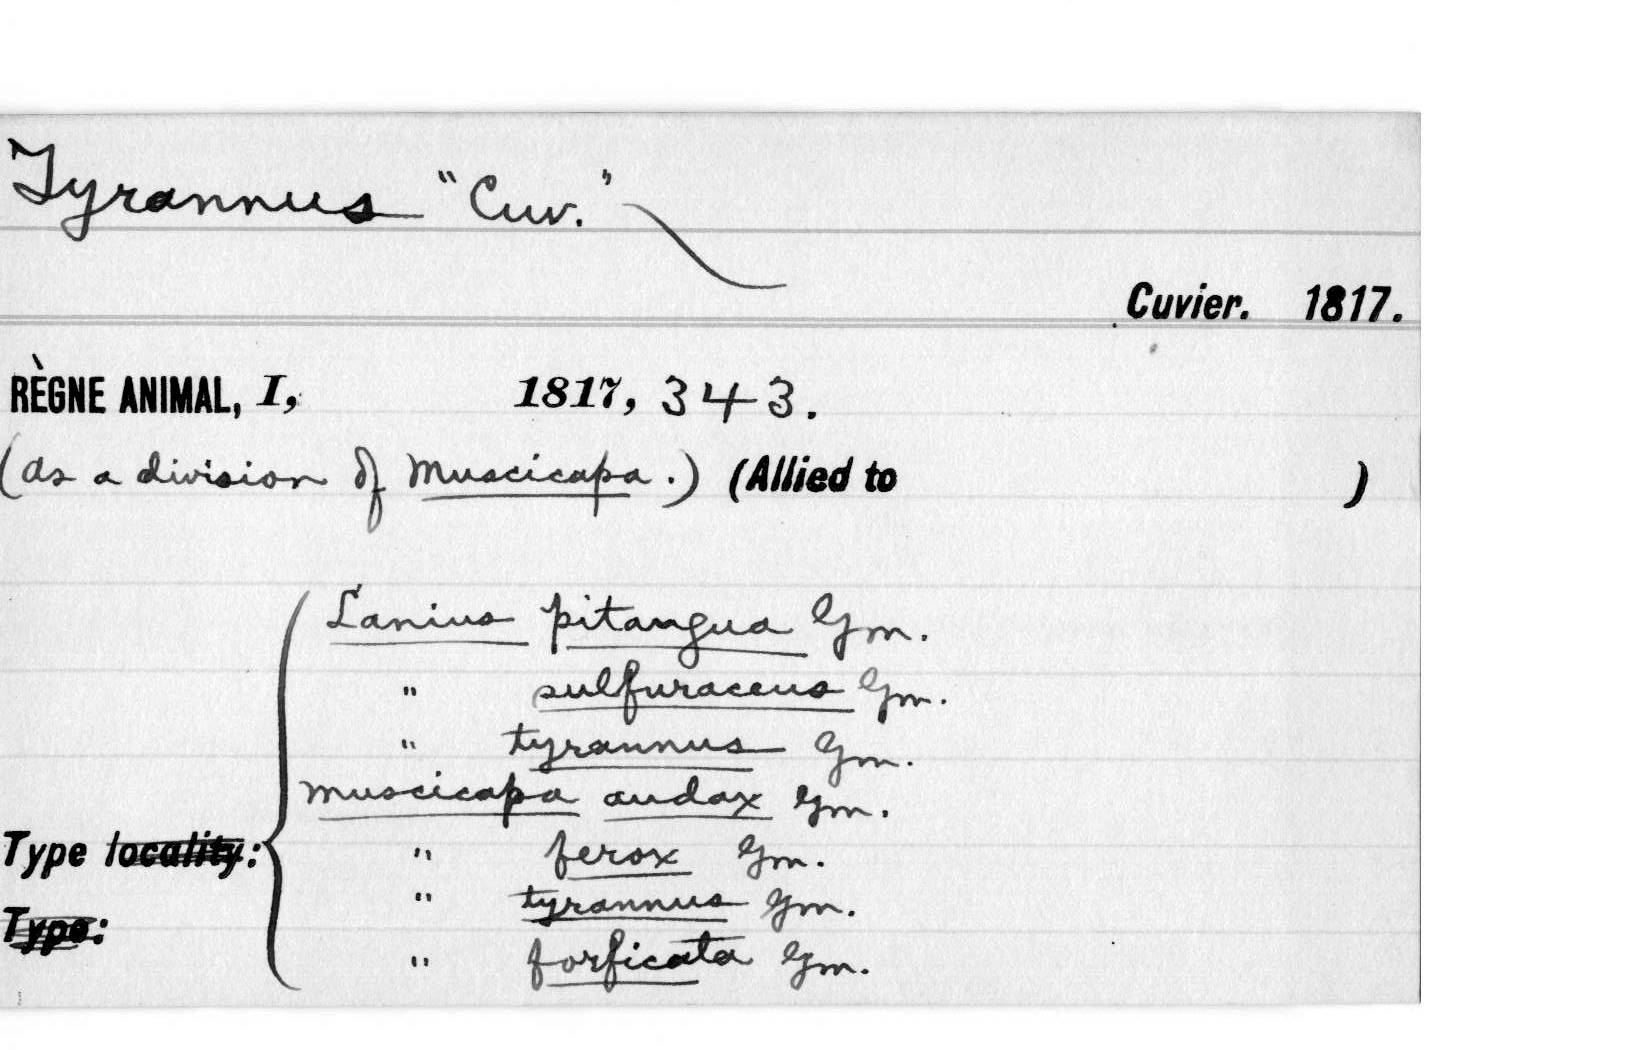 Tyrannus "Cuv."
Cuvier. 1817.
RÈGNE ANIMAL, I, 1817, 343.
(as a division of Muscicapa.) (Allied to )
Lanius pitangua Gm.
" sulfuraceus Gm.
" tyrannus Gm.
Muscicapa audax Gm.
Type locality: " ferox Gm.
" tyrannus Gm.
Type:
" forficata Gm.